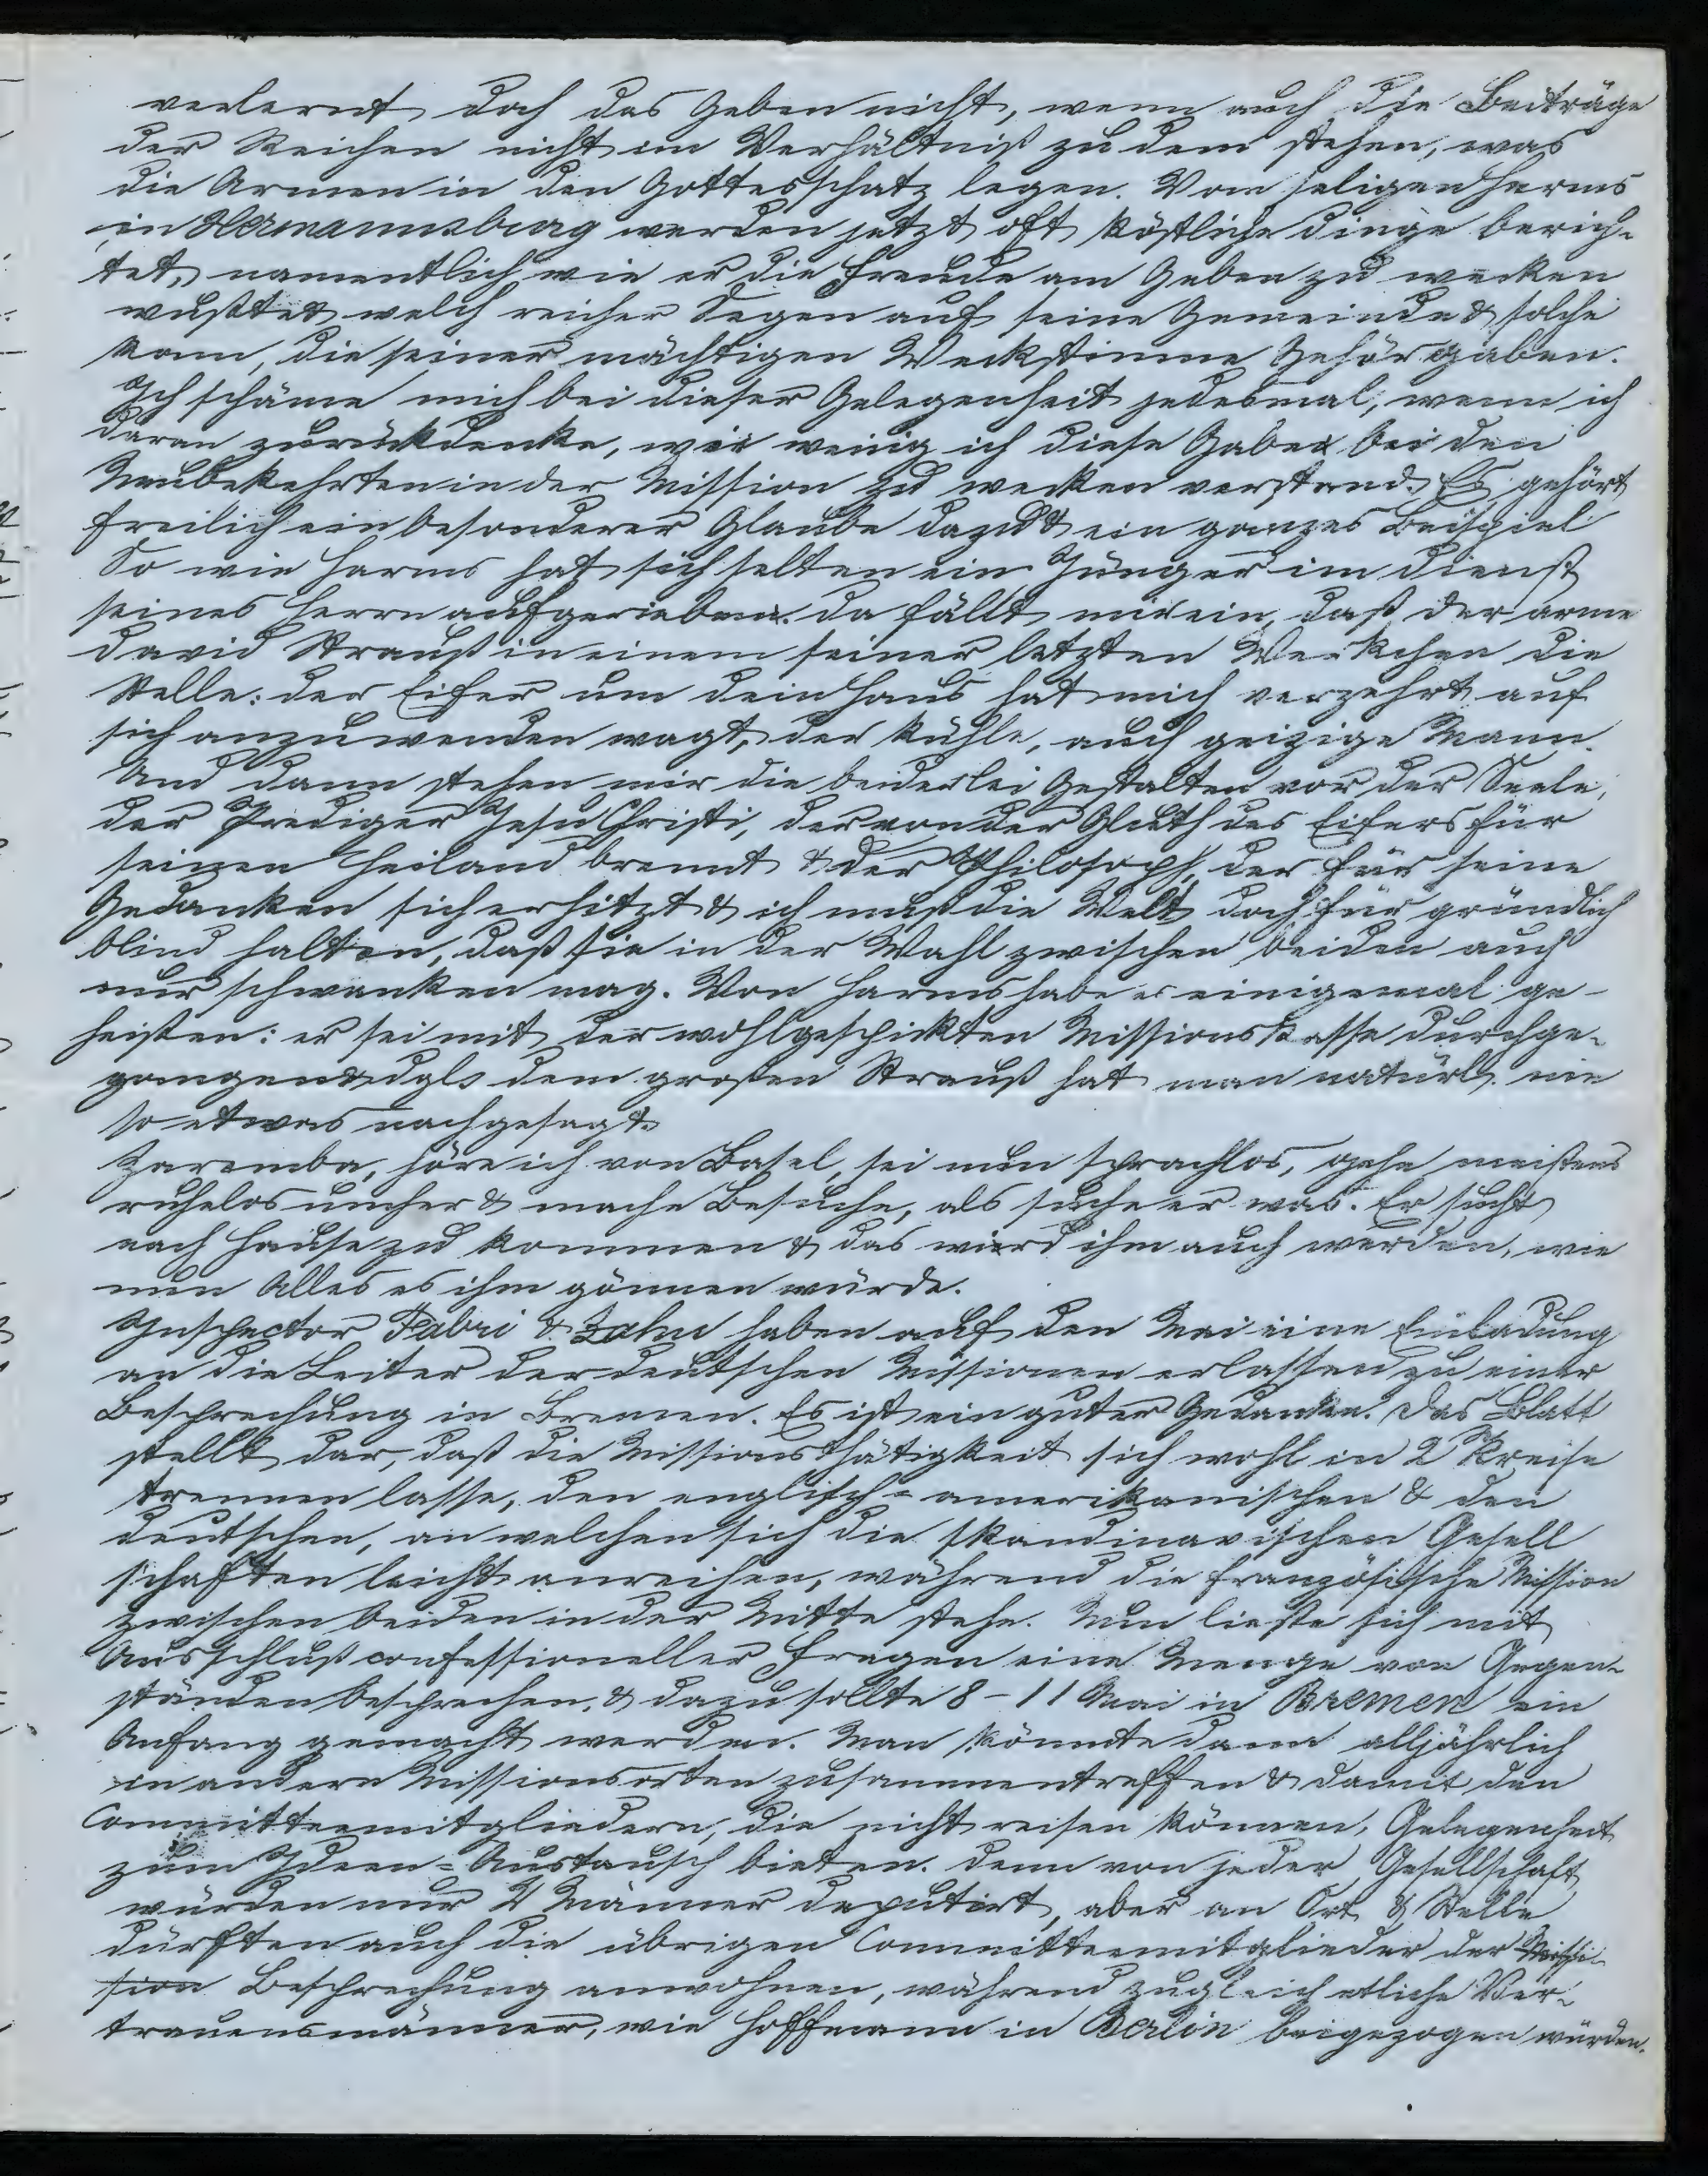 verlernt doch das Geben nicht, wenn auch die Beiträge
der Reichen nicht im Verhältniß zu dem stehen, was
die Armen in den Gottesschatz legen. Vom seligen Harms
in Hermannsburg werden jetzt oft köstliche Dinge berich-
tet, namentlich wie er die Freude am Geben zu wecken
wußte & welch reicher Segen auf seine Gemeinde & solche
kam, die seiner mächtigen Weckstimme Gehör gaben.
Ich schäme mich bei dieser Gelegenheit jedesmal, wenn ich
daran zurückdenke, wie wenig ich diese Gabe bei den
Neubekehrten in der Mission zu wecken verstand. Es gehört
freilich ein besonderer Glaube dazu & ein ganzes Beispiel
So wie Harms hat sich selten ein Jünger im Dienst
seines Herrn aufgerieben. Da fällt mir ein, daß der arme
David Strauß in einem seiner letzten Werkchen die
Stelle: der Eifer um dein Haus hat mich verzehrt auf
sich anzuwenden wagt, der kühle, auch geizige Mann.
Und dann stehen mir die beiderlei Gestalten vor der Seele,
der Prediger Jesu Christi, der von der Gluth des Eifers für
seinen Heiland brennt & der Philosoph, der für seine
Gedanken sich erhitzt & ich muß die Welt doch für gründlich
blind halten, daß sie in der Wahl zwischen beiden auch
nur schwanken mag. Von Harms habe es einigemal ge-
heißen: er sei mit der wohlgespickten Missionskasse durchge-
gangen & dgl. dem großen Strauß hat man natürl. nie
so etwas nachgesagt.
Zaremba, höre ich von Basel, sei nun sprachlos, gehe meistens
ruhelos umher & mache Besuche, als suche er was. Er sucht
nach Hause zu kommen & das wird ihm auch werden, wie
nun Alles es ihm gönnen würde.
Inspector Fabri & Zahn haben auf den Mai eine Einladung
an die Leiter der deutschen Missionen erlassen zu einer
Besprechung in Bremen. Es ist ein guter Gedanke. Das Blatt
stellt dar, daß die Missionsthätigkeit sich wohl in 2 Kreise
trennen lasse, den englisch-amerikanischen & den
deutschen, an welchen sich die skandinavischen Gesell
schaften leicht anreihen, während die französische Mission
zwischen beiden in der Mitte stehe. Nun ließe sich mit
Ausschluß confessioneller Fragen eine Menge von Gegen-
ständen besprechen, & dazu sollte 8-11 Mai in Bremen ein
Anfang gemacht werden. Man könnte dann alljährlich
in andern Missionsorten zusammentreffen & damit den
Committeemitgliedern, die nicht reisen können, Gelegenheit
zum Ideen-Austausch bieten. Denn von jeder Gesellschaft
würden nur 2 Männer deputirt, aber an Ort & Stelle
dürften auch die übrigen Committeemitglieder der Missi-
sion Besprechung anwohnen, während zugleich etliche Ver-
trauensmänner, wie Hoffmann in Berlin beigezogen würden.